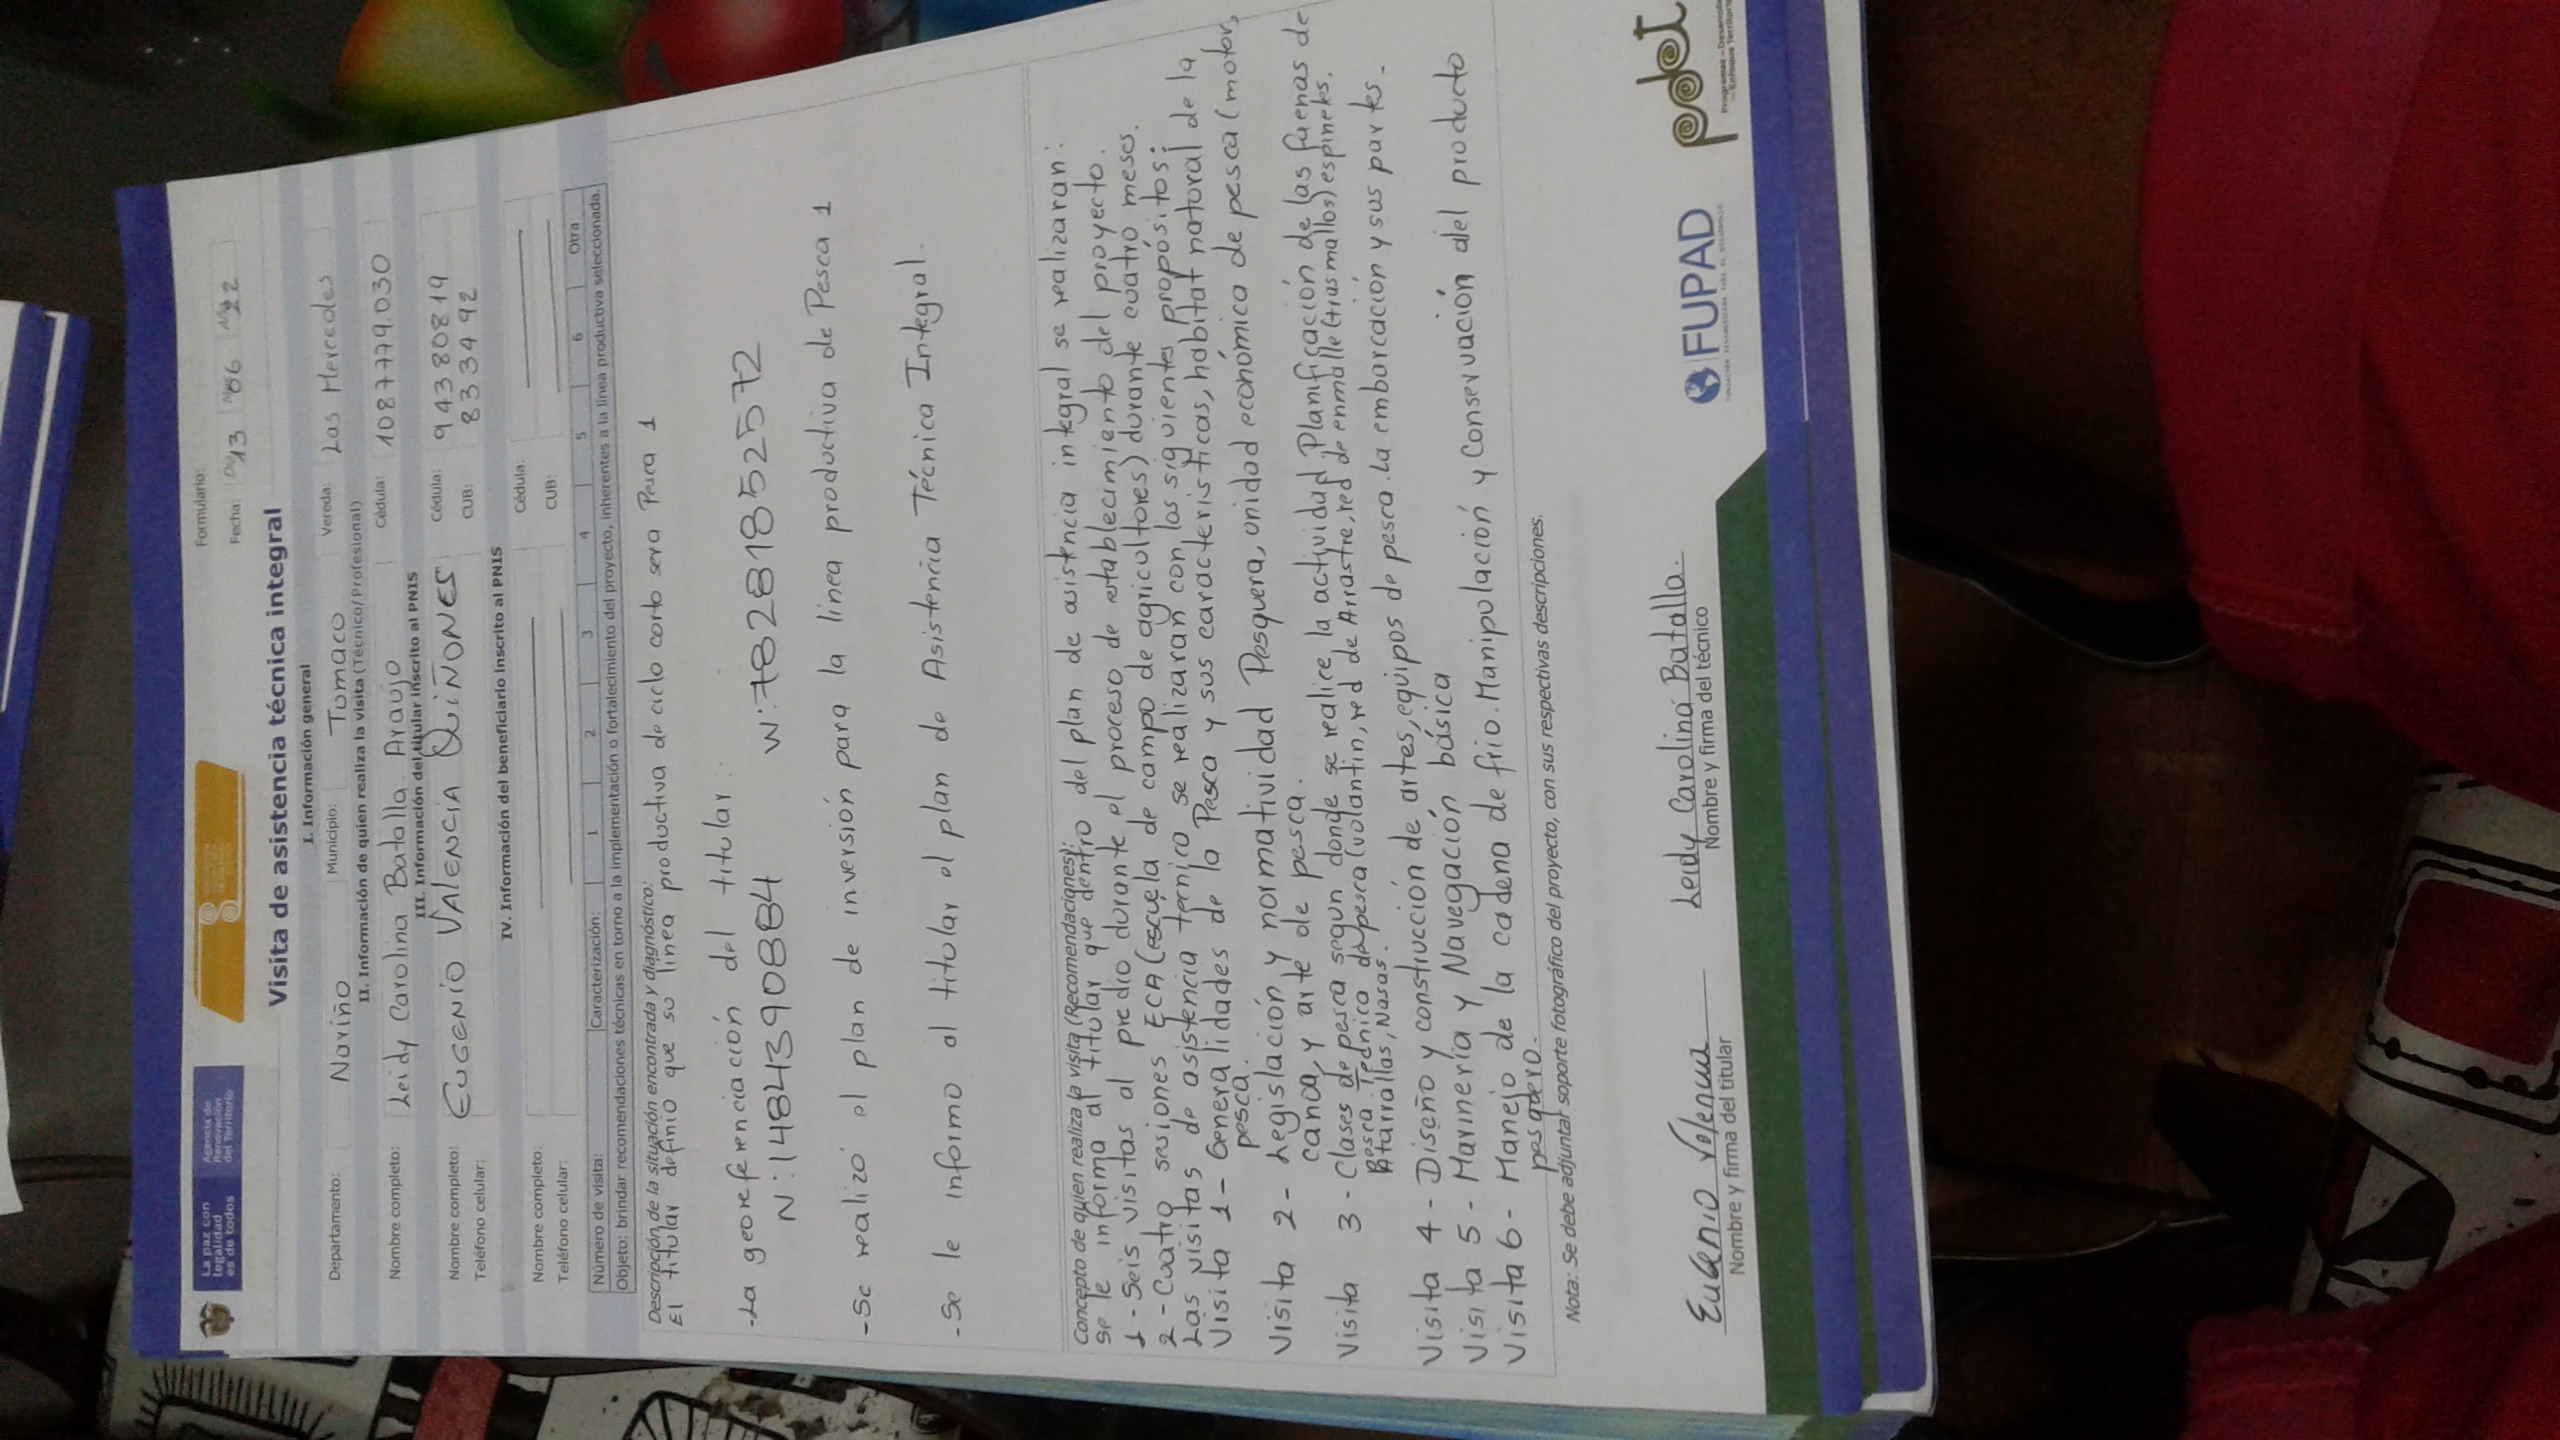 La paz con
legalidad
es de todos
Agencia de
Renovación
del Territorio
Formulario:
Fecha: Día 13 Mes 06 Año 22
Visita de asistencia técnica integral
I. Información general
Departamento: Nariño Municipio: Tumaco Vereda: Las Mercedes
II. Información de quien realiza la visita (Técnico/Profesional)
Nombre completo: Leidy Carolina Batalla Araujo Cédula: 1087779.030
III. Información del titular inscrito al PNIS
Nombre completo: EUGENIO VALENCIA QUIÑONES Cédula: 94380819
Teléfono celular: CUB: 833492
IV. Información del beneficiario inscrito al PNIS
Nombre completo: Cédula:
Teléfono celular: CUB:
Número de visita: Caracterización: 1 2 3 4 5 6 Otra
Objeto: brindar recomendaciones técnicas en torno a la implementación o fortalecimiento del proyecto, inherentes a la línea productiva seleccionada.
Descripción de la situación encontrada y diagnóstico:
El titular definio que su linea productiva de ciclo corto sera Pesca 1
-La georeferenciación del titular:
N:1484390884 W:78281852572
-Se realizó el plan de inversión para la línea productiva de Pesca 1
-Se le informo al titular el plan de Asistencia Técnica Integral.
Concepto de quien realiza la visita (Recomendaciones):
se le informa al titular que dentro del plan de asistencia integral se realizaran:
1-Seis visitas al predio durante el proceso de establecimiento del proyecto.
2-Cuatro sesiones ECA(escuela de campo de agricultores) durante cuatro meses.
Las visitas de asistencia ternico se realizaran con los siguientes propósitos:
Visita 1- Generalidades de la Pesca y sus caracteristicas, habitat natural de la
pesca.
Visita 2- Legislación y normatividad Pesquera, unidad económica de pesca(motor,
canoa, y arte de pesca.
Visita 3-Clases de pesca segun donde se realice la actividad Planificación de las faenas de
pesca. Tecnica de pesca(volantin, red de Arrastre, red de enmalle(trasmallos) espineles.
Atarrallas, Nasas.
Visita 4- Diseño y construcción de artes, equipos de pesca. La embarcación y sus partes.
Visita 5- Marinería y Navegación básica
Visita 6- Manejo de la cadena de frio. Manipulación y Conservación del producto
pesquero.
Nota: Se debe adjuntar soporte fotográfico del proyecto, con sus respectivas descripciones.
Eugenio Valencia Leidy Carolina Batalla.
Nombre y firma del titular Nombre y firma del técnico
FUPAD
pdet